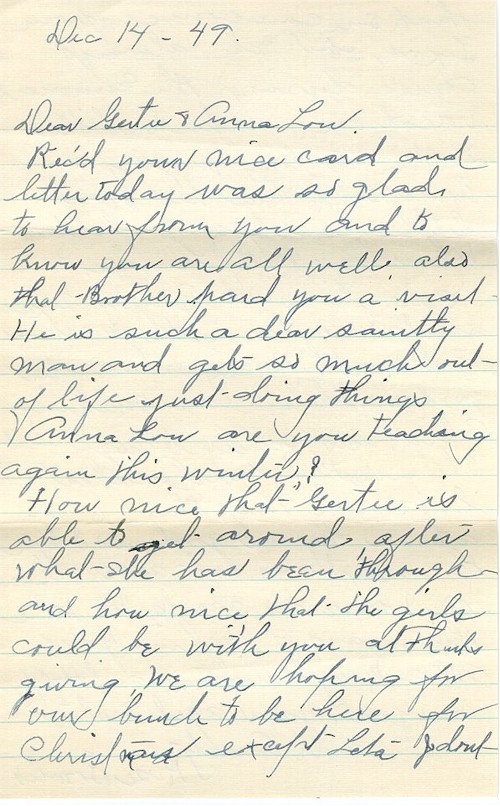 Dec 14 - 49.
Dear Gertie & Anna Lou.
Rec'd your nice card and
letter today was so glad
to hear from you and to
know you are all well also
that Brother paid you a visit
He is such a dear saintly
man and gets so much out
of life just doing things
Anna Lou are you teaching
again this winter?
How nice that Gertie is
able to get around after
what she has been through
and how nice that the girls
could be with you at Thanks
giving, We are hoping for
our bunch to be here for
Christmas except Leta I dont